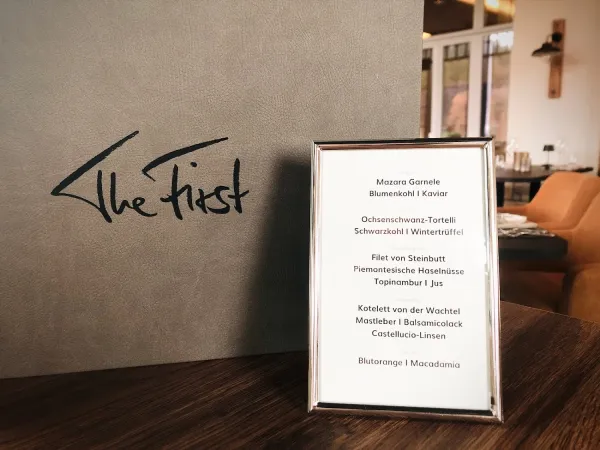 The First
Mazara Garnele
Blumenkohl I Kaviar
Ochsenschwanz-Tortelli
Schwarzkohl I Wintertrüffel
Filet von Steinbutt
Piemontesische Haselnüsse
Topinambur I Jus
Kotelett von der Wachtel
Mastleber I Balsamicolack
Castelluccio-Linsen
Blutorange I Macadamia